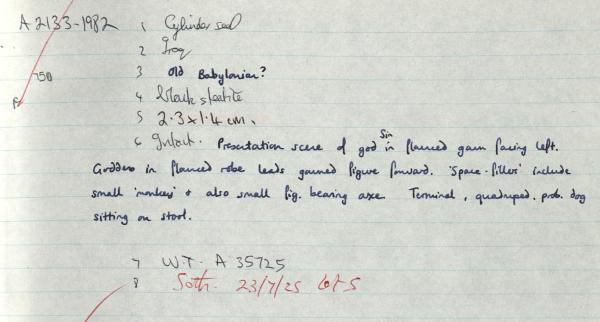 A 2133-1982 1 Cylinder seal
2 Iraq
3 Old Babylonian?
750
4 black steatite
5 2.3 x 1.4 cm.
6 Intact. Presentation scene of god Sin in flounced gown facing left.
Goddess in flounced robe leads gowned figure forward. 'Space-fillers' include
small 'monkey' & also small fig. bearing axe. Terminal, quadruped. prob. dog
sitting on stool.
7 W.T. A 35725
8 Soth. 23/7/25 lot 5